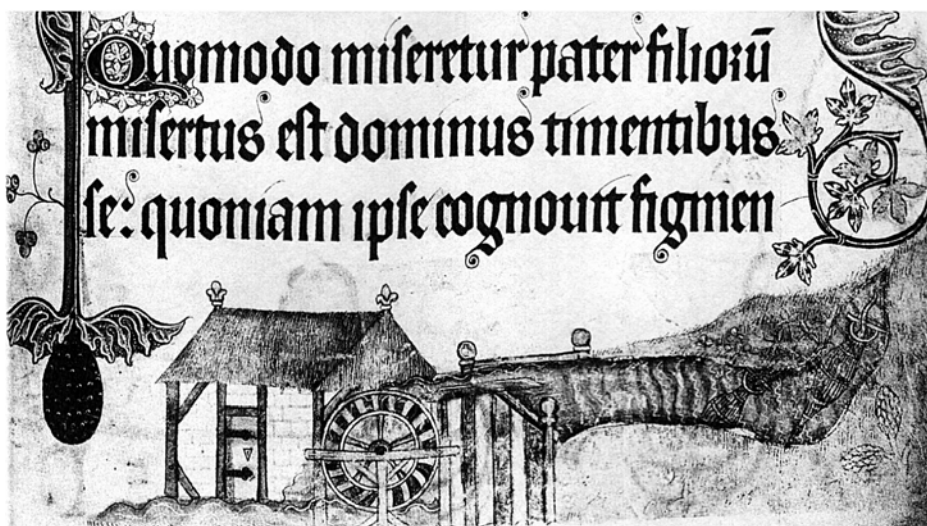 Quomodo miseretur pater filiorū
misertus est dominus timentibus
se: quoniam ipse cognouit figmen